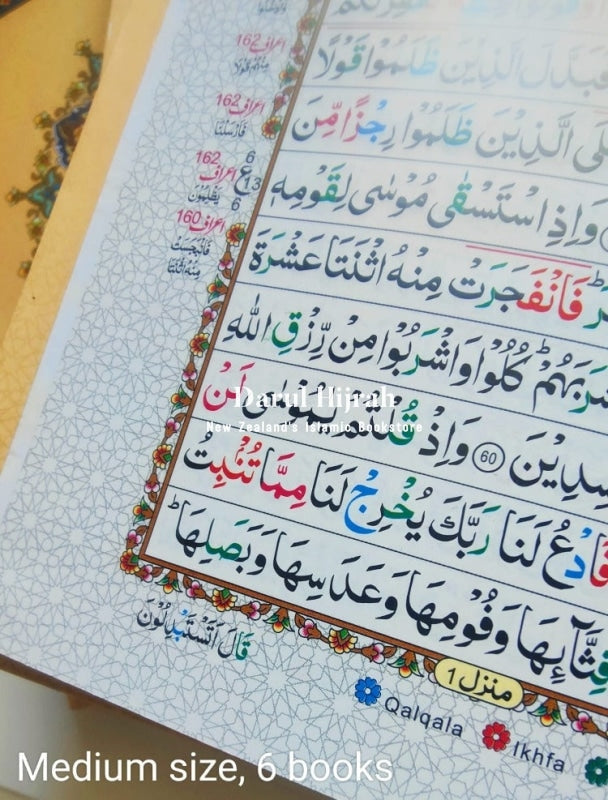 فَبَدَّلَ الَّذِيْنَ ظَلَمُوْا قَوْلًا
عَلَى الَّذِيْنَ ظَلَمُوْا رِجْزًا مِّنَ
وَاِذِ اسْتَسْقٰى مُوْسٰى لِقَوْمِهٖ
فَانْفَجَرَتْ مِنْهُ اثْنَتَا عَشْرَةَ
كُلُوْا وَاشْرَبُوْا مِنْ رِّزْقِ اللّٰهِ
60 وَاِذْ قُلْتُمْ يٰمُوْسٰى لَنْ
فَادْعُ لَنَا رَبَّكَ يُخْرِجْ لَنَا مِمَّا تُنْۢبِتُ
وَفُوْمِهَا وَعَدَسِهَا وَبَصَلِهَا ؕ
قَالَ اَتَسْتَبْدِلُوْنَ
منزل 1
اعراف 162
مِنْهُمْ قَوْلًا
اعراف 162
فَاَرْسَلْنَا
اعراف 162
يَظْلِمُوْنَ
6
ع 13
6
اعراف 160
فَانْۢبَجَسَتْ
مِنْهُ اثْنَتَا
Darul Hijrah
New Zealand's Islamic Bookstore
Qalqala
Ikhfa
Medium size, 6 books